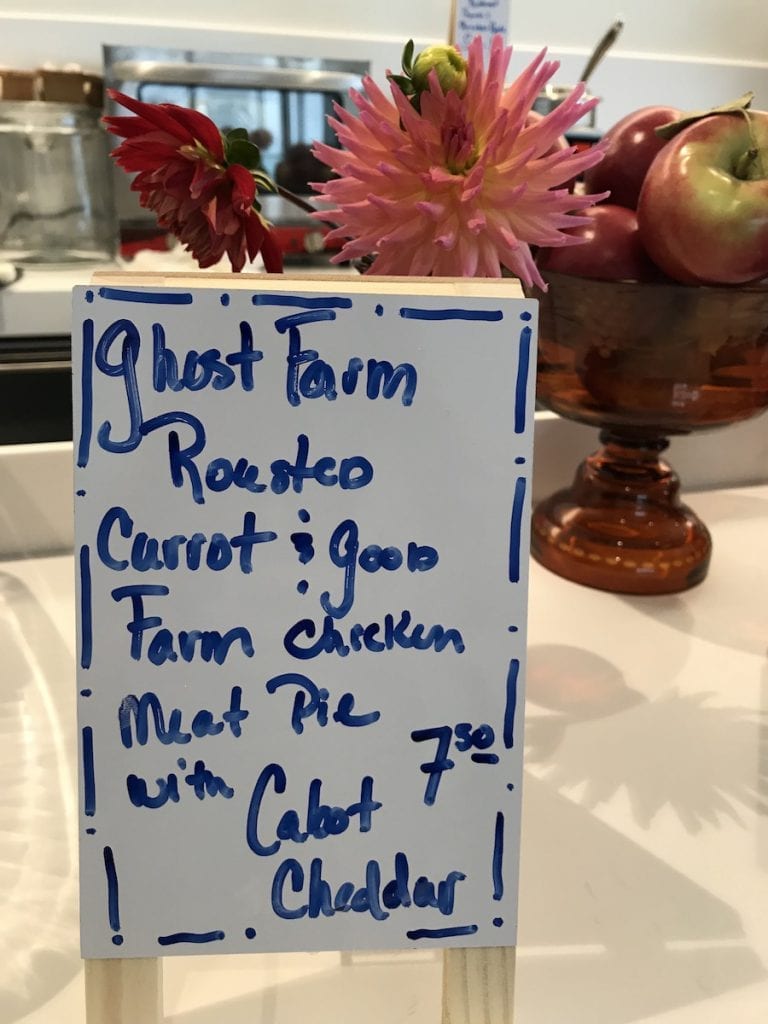 Ghost Farm
Roasted
Carrot & Good
Farm Chicken
Meat Pie
7.50
with Cabot
Cheddar